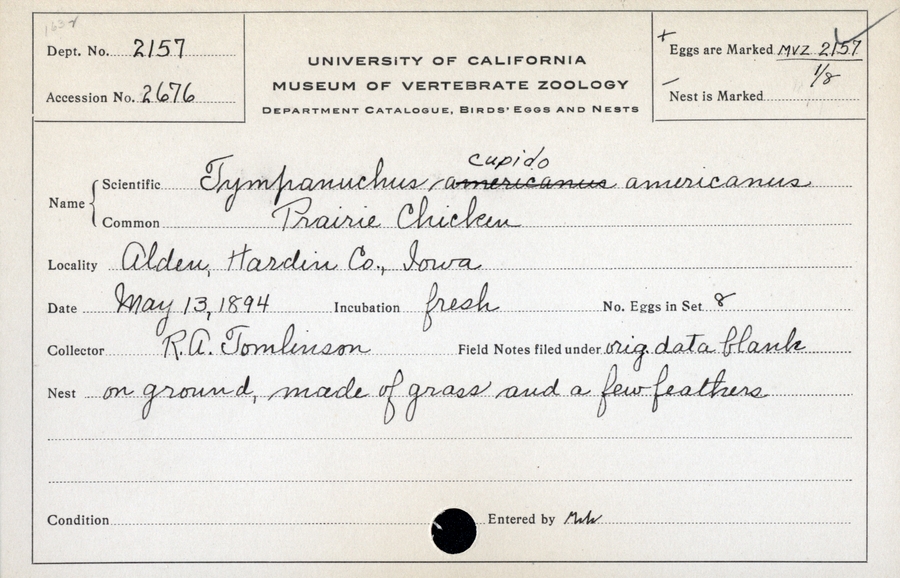 Dept. No. 2157
Accession No. 2676
UNIVERSITY OF CALIFORNIA
MUSEUM OF VERTEBRATE ZOOLOGY
DEPARTMENT CATALOGUE, BIRDS' EGGS AND NESTS
+ Eggs are Marked MVZ 2157
1/8
– Nest is Marked
cupido
Name Scientific Tympanuchus americanus americanus
Common Prairie Chicken
Locality Alden, Hardin Co., Iowa
Date May 13, 1894 Incubation fresh No. Eggs in Set 8
Collector R.A. Tomlinson Field Notes filed under orig. data blank
Nest on ground, made of grass and a few feathers
Condition Entered by